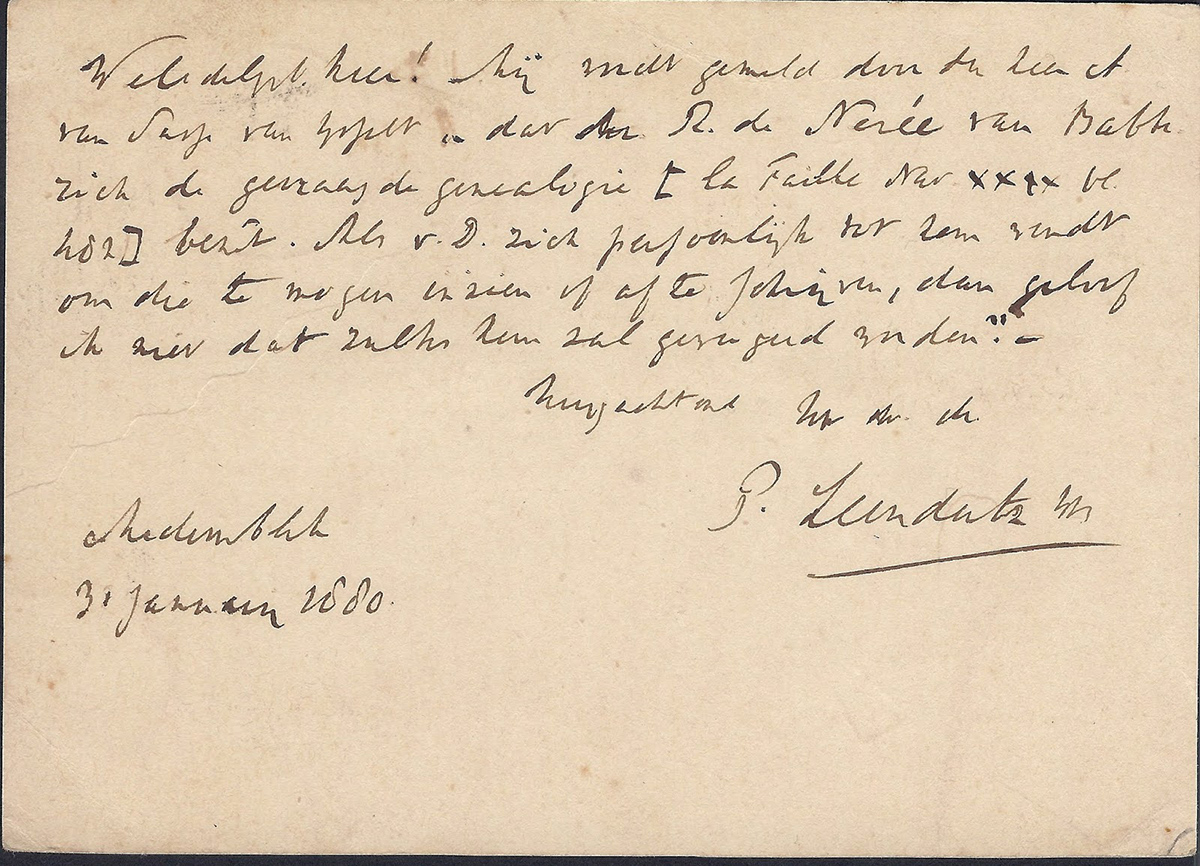 Weledelgeb. heer! Mij wordt gemeld door den heer
van van dat R. de Nerée van Babb.
zich de gevraagde genealogie [ la Faille Nav xxxx bl.
] bezit. Als v. D. zich persoonlijk tot hem wendt
om die te mogen inzien of af te schrijven, dan geloof
ik niet dat zulks hem zal geweigerd worden." –
Hoogachtend
P. Leendertz
Medemblik
31 januarij 1880.